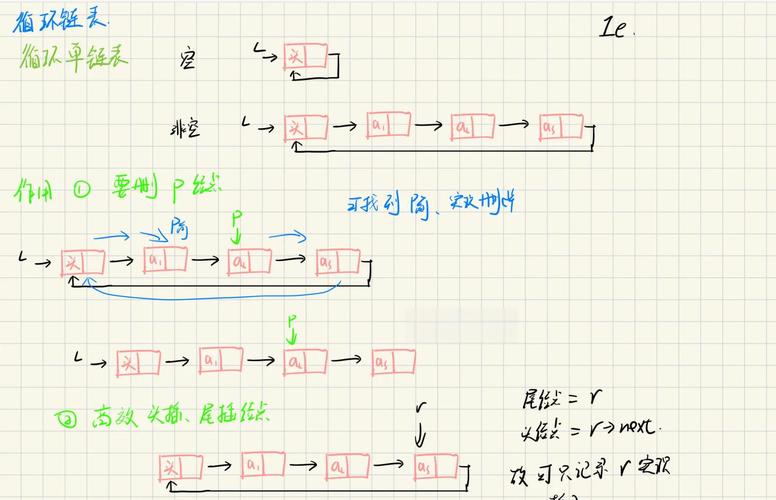 循环链表.
1e.
循环单链表
空 L 头
非空 L 头 a₁ a₂ a₃
作用 ① 要删 P 结点
P前
可找到 P前、实现删除
P
L 头 a₁ a₂ a₃
P
L 头 a₁ a₂ a₃
② 高效 头插、尾插结点
r
尾结点 = r
头结点 = r→next.
头 a₁ a₂ a₃
故可只记录 r 实现